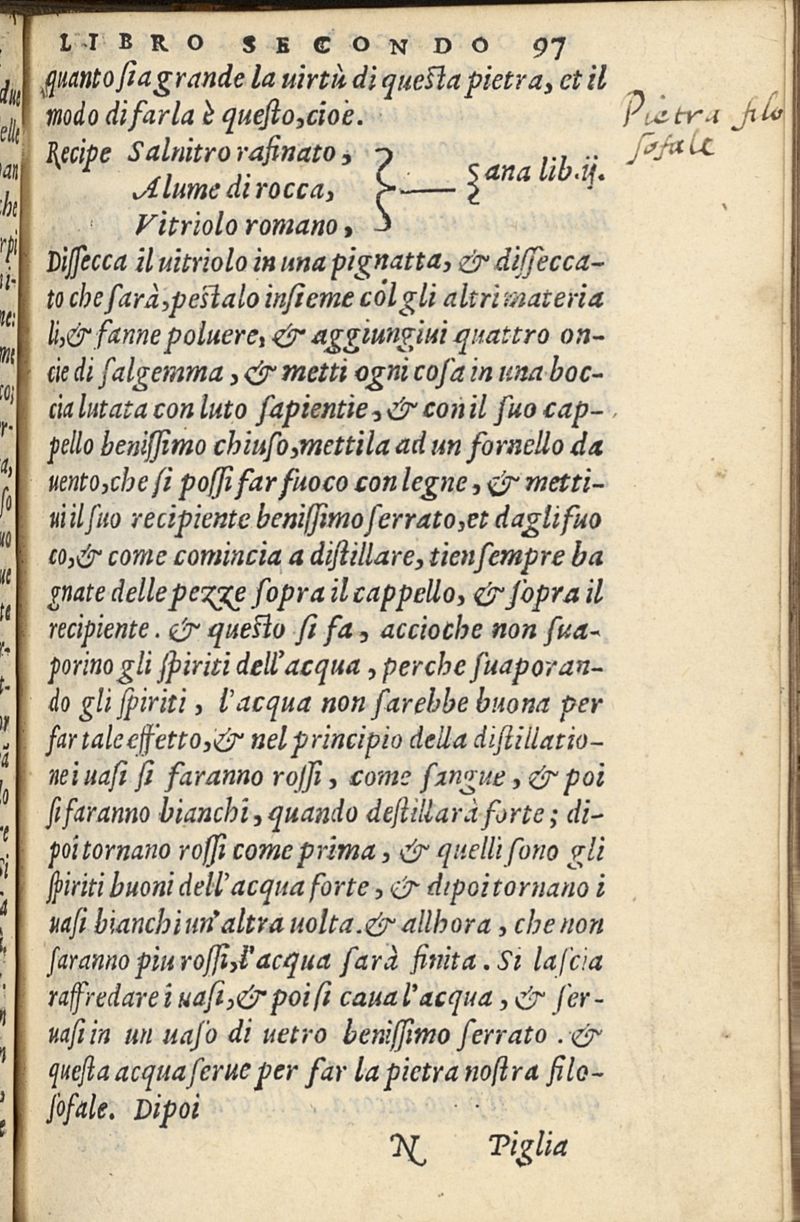 LIBRO SECONDO 97
quanto sia grande la uirtù di questa pietra, et il
modo di farla è questo, cioè.
Pietra filo
sofale
Recipe Salnitro rafinato,
Alume di rocca,
Vitriolo romano,
ana lib. ii.
Dissecca il uitriolo in una pignatta, & dissecca-
to che sarà, pestalo insieme cōl gli altri materia
li, & fanne poluere, & aggiungiui quattro on-
cie di salgemma, & metti ogni cosa in una boc-
cia lutata con luto sapientie, & con il suo cap-
pello benissimo chiuso, mettila ad un fornello da
uento, che si possi far fuoco con legne, & metti-
ui il suo recipiente benissimo serrato, et dagli fuo
co, & come comincia a distillare, tien sempre ba
gnate delle pezze sopra il cappello, & sopra il
recipiente. & questo si fa, accioche non sua-
porino gli spiriti dell'acqua, perche suaporan-
do gli spiriti, l'acqua non sarebbe buona per
far tale effetto, & nel principio della distillatio-
ne i uasi si faranno rossi, come sangue, & poi
si faranno bianchi, quando destillarà forte; di-
poi tornano rossi come prima, & quelli sono gli
spiriti buoni dell'acqua forte, & dipoi tornano i
uasi bianchi un'altra uolta. & allhora, che non
saranno piu rossi, l'acqua sarà finita. Si lascia
raffredare i uasi, & poi si caua l'acqua, & ser-
uasi in un uaso di uetro benissimo serrato. &
questa acqua serue per far la pietra nostra filo-
sofale. Dipoi
N Piglia